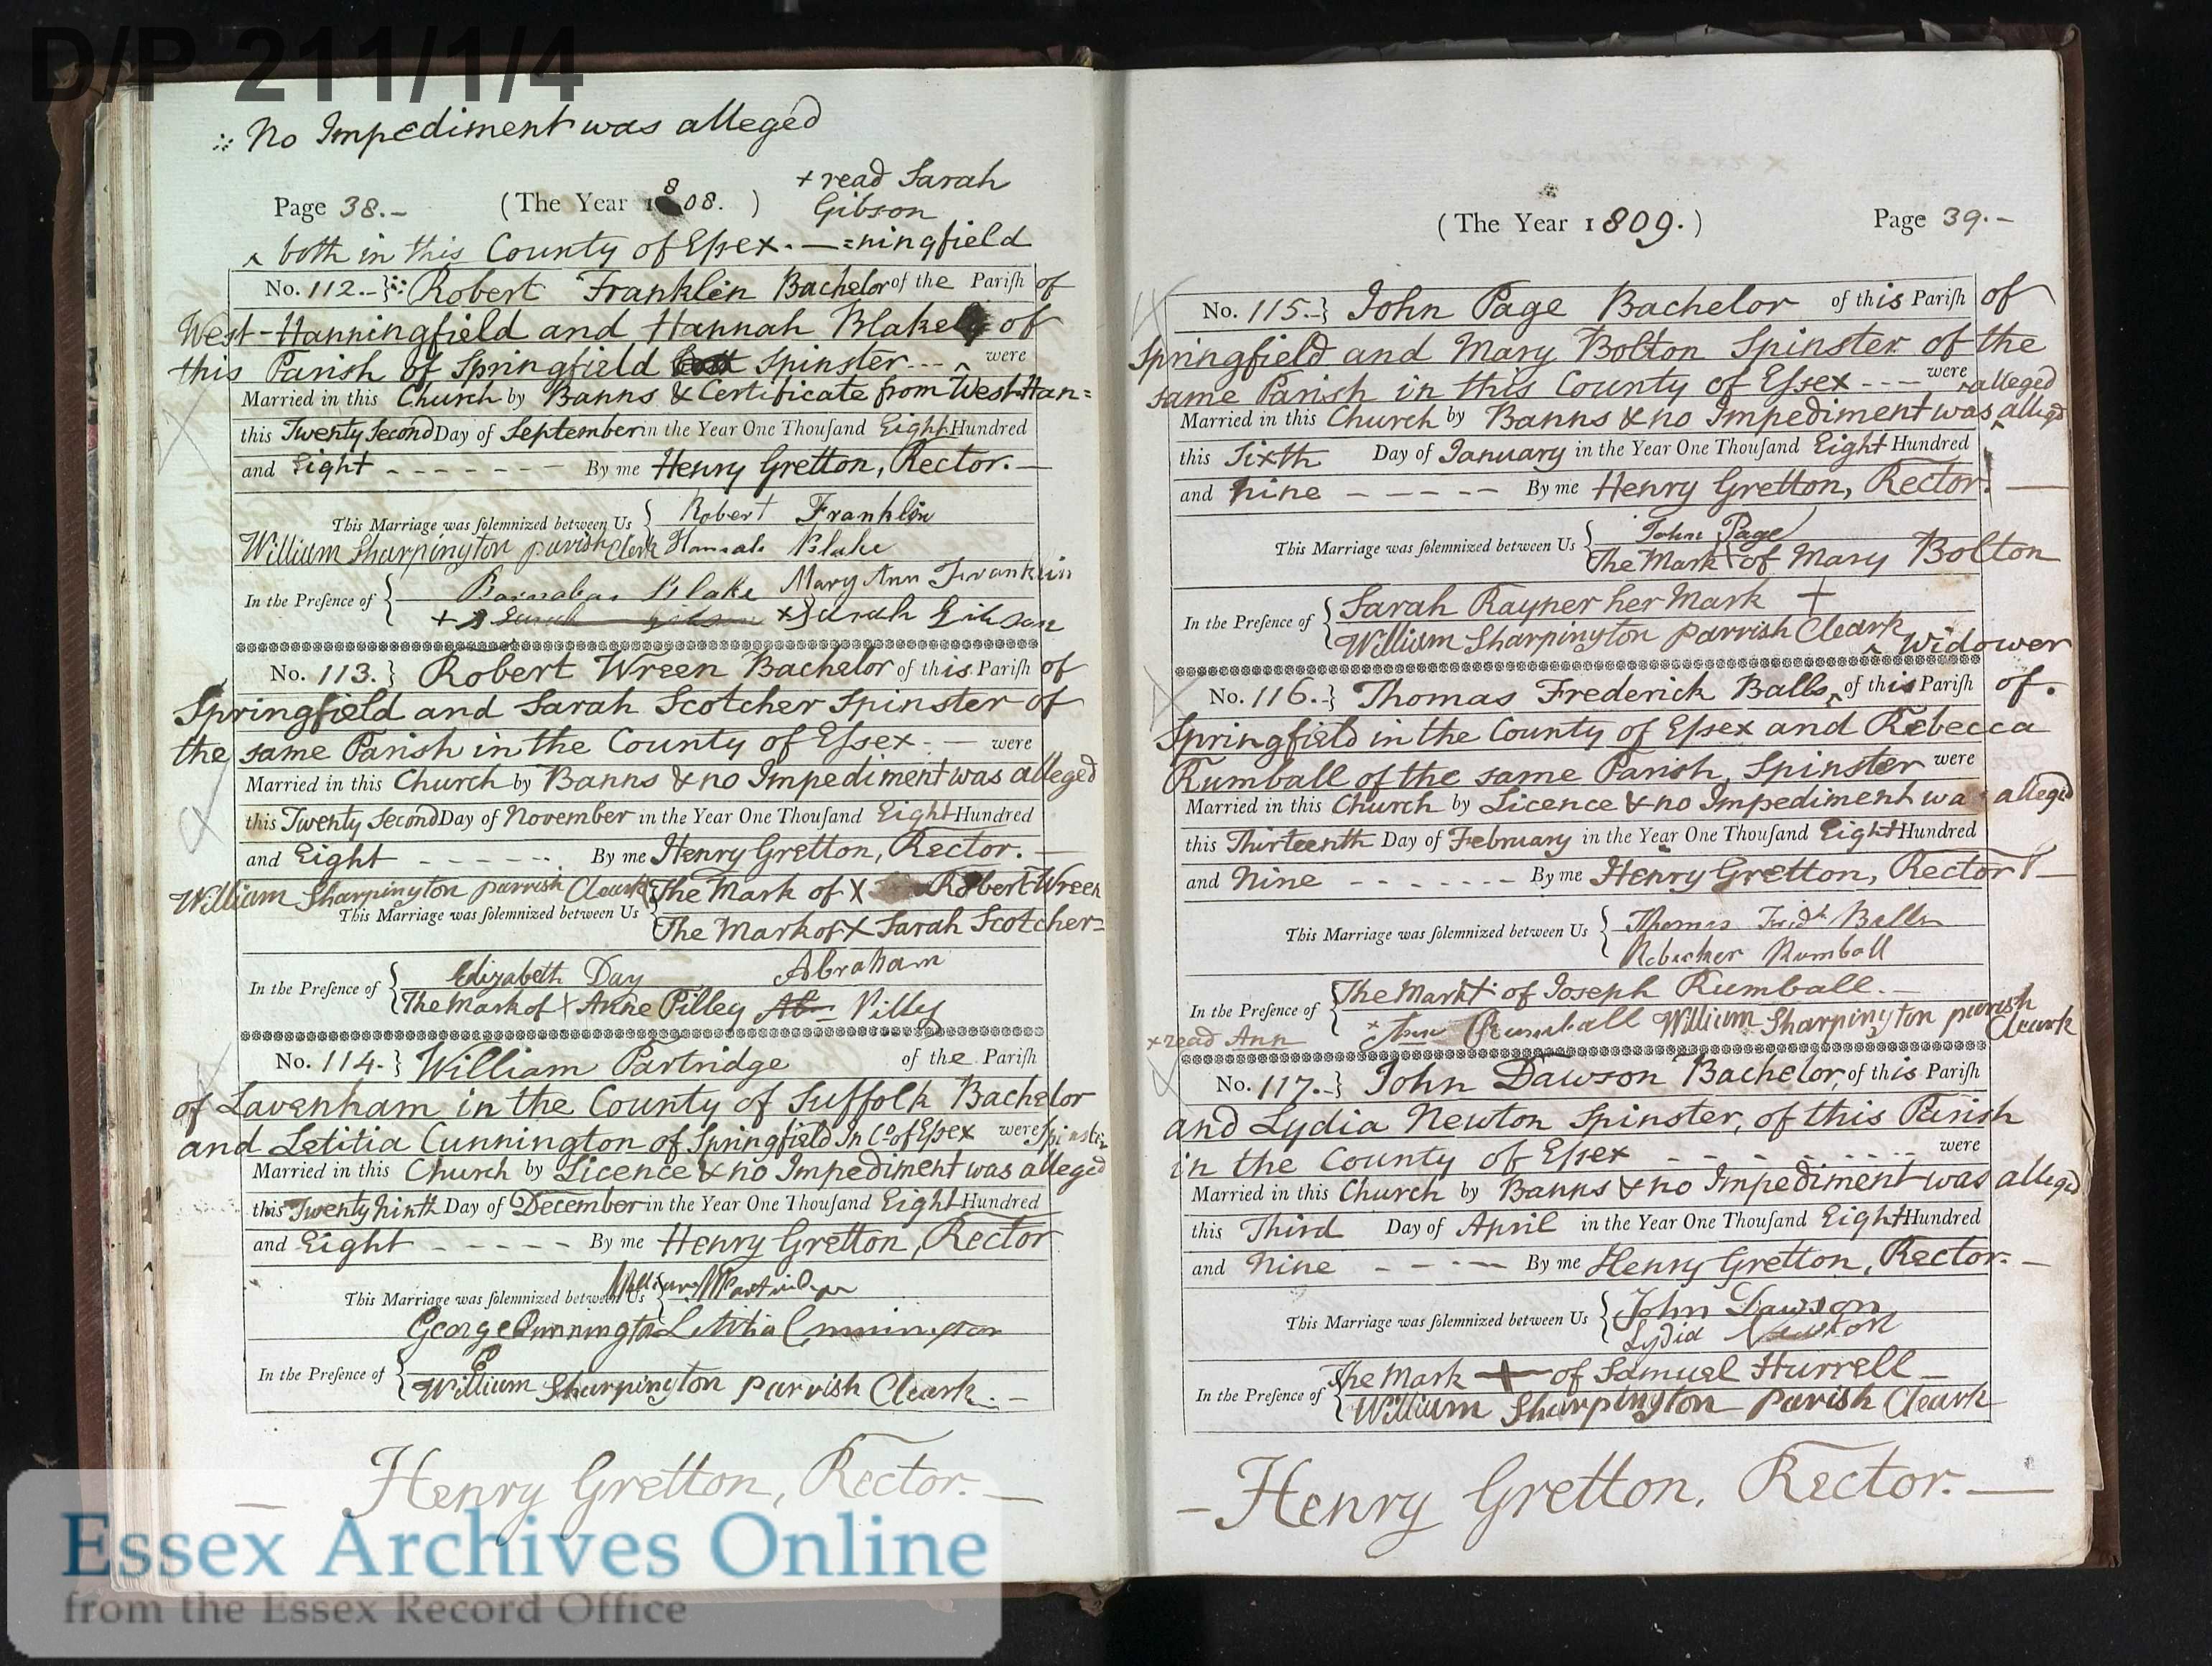 D/P 211/1/4
No Impediment was alleged
+ read Sarah
Page 38.- (The Year 1808.) Gibson
^ both in this County of Essex. — =ningfield
No. 112. Robert Franklin Bachelor of the Parish of
West-Hanningfield and Hannah Blake of
this Parish of Springfield Spinster --- ^ were
Married in this Church by Banns & Certificate from West-Han=
this Twenty Second Day of September in the Year One Thousand Eight Hundred
and Eight - - - - - - - By me Henry Gretton, Rector. —
This Marriage was solemnized between Us Robert Franklin
William Sharpington parish Clerk Hannah Blake
In the Presence of Barnabas Blake Mary Ann Franklin
+ Sarah Gibson x Sarah Gibson
No. 113. Robert Wreen Bachelor of this Parish of
Springfield and Sarah Scotcher Spinster of
the same Parish in the County of Essex. — were
Married in this Church by Banns & no Impediment was alleged
this Twenty Second Day of November in the Year One Thousand Eight Hundred
and Eight - - - - - - By me Henry Gretton, Rector. —
William Sharpington parrish Cleark The Mark of X Robert Wreen
This Marriage was solemnized between Us
The Mark of X Sarah Scotcher=
In the Presence of Elizabeth Day Abraham
The Mark of X Anne Pilley Ab Pilley
No. 114. William Partridge of the Parish
of Lavenham in the County of Suffolk Bachelor
and Letitia Cunnington of Springfield In Co. of Essex were Spinster
Married in this Church by Licence & no Impediment was alleged
this Twenty ninth Day of December in the Year One Thousand Eight Hundred
and Eight - - - - - By me Henry Gretton, Rector
This Marriage was solemnized between Us William Partridge
George Cunnington Letitia Cunnington
In the Presence of
William Sharpington parrish Cleark. -
— Henry Gretton, Rector. —
(The Year 1809.) Page 39.-
No. 115. John Page Bachelor of this Parish of
Springfield and Mary Bolton Spinster of the
same Parish in this County of Essex --- were ^alleged
Married in this Church by Banns & no Impediment was ^ alleged
this Sixth Day of January in the Year One Thousand Eight Hundred
and Nine - - - - - By me Henry Gretton, Rector. —
This Marriage was solemnized between Us John Page
The Mark + of Mary Bolton
In the Presence of Sarah Rayner her Mark +
William Sharpington parrish Cleark
^ Widower
No. 116. Thomas Frederick Balls ^ of this Parish of.
Springfield in the County of Essex and Rebecca
Rumball of the same Parish, Spinster were
Married in this Church by Licence & no Impediment was alleged
this Thirteenth Day of February in the Year One Thousand Eight Hundred
and Nine - - - - - - By me Henry Gretton, Rector —
This Marriage was solemnized between Us Thomas Fredk Balls
Rebecker Rumball
In the Presence of The Mark + of Joseph Rumball. —
x Ann Rumball William Sharpington parish Cleark
x read Ann
No. 117. John Dawson Bachelor, of this Parish
and Lydia Newton Spinster, of this Parish
in the County of Essex - - - - - - were
Married in this Church by Banns & no Impediment was alleged
this Third Day of April in the Year One Thousand Eight Hundred
and Nine - - - - By me Henry Gretton, Rector. —
This Marriage was solemnized between Us John Dawson
Lydia Newton
In the Presence of The Mark + of Samuel Hurrell
William Sharpington parish Cleark
— Henry Gretton, Rector. —
Essex Archives Online
from the Essex Record Office